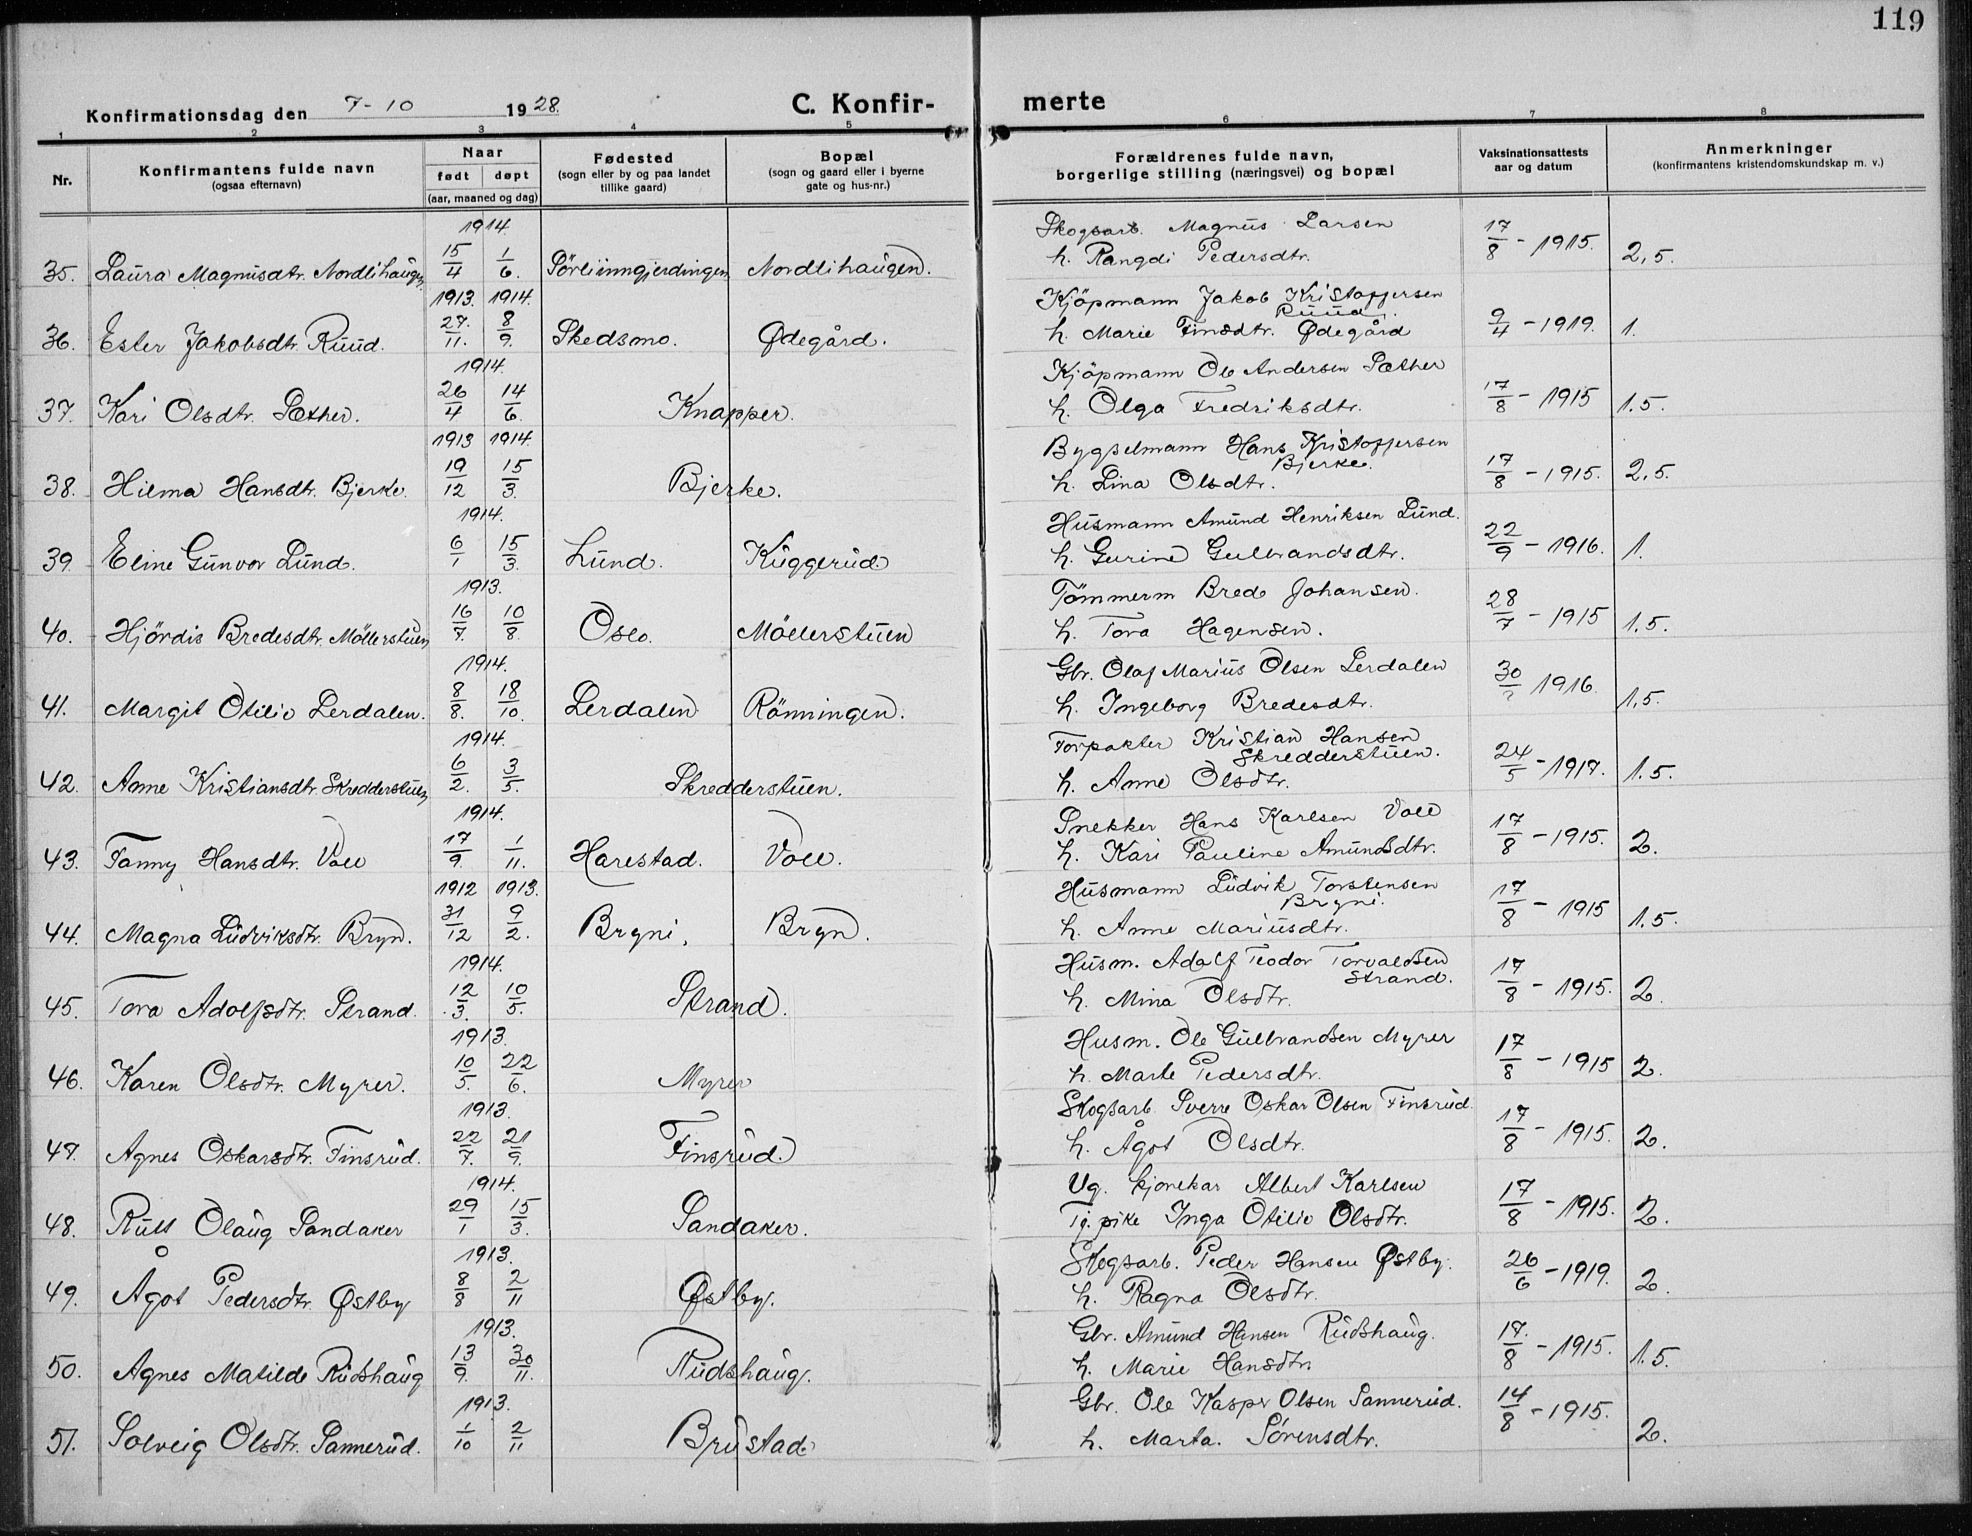 119
Konfirmationsdag den 7-10 1928. C. Konfirmerte
1 2 3 4 5 6 7 8
Nr. | Konfirmantens fulde navn (ogsaa efternavn) | Naar født døpt (aar, maaned og dag) | Fødested (sogn eller by og paa landet tillike gaard) | Bopæl (sogn og gaard eller i byerne gate og hus-nr.) | Forældrenes fulde navn, borgerlige stilling (næringsvei) og bopæl | Vaksinationsattests aar og datum | Anmerkninger (konfirmantens kristendomskundskap m. v.)
1914. Skogsarb. Magnus Larsen
35. Laura Magnusdtr. Nordlihaugen 15/4 1/6. Sörliinngjerdingen Nordlihaugen. h. Rangdi Pedersdtr. 17/8 - 1915. 2,5.
1913. 1914. Kjöpmann Jakob Kristoffersen Ruud.
36. Ester Jakobsdtr. Ruud. 27/11. 8/9. Skedsmo. Ødegård. h. Marie Finsdtr. Ødegård 9/4 - 1919. 1.
1914. Kjöpmann Ole Andersen Sæther
37. Kari Olsdtr. Sæther. 26/4 14/6. Knapper. h. Olga Fredriksdtr. 17/8 - 1915 1.5.
1913 1914. Bygselmann Hans Kristoffersen Bjerke.
38. Hilma Hansdtr. Bjerke. 19/12 15/3. Bjerke. h. Lina Olsdtr. 17/8 - 1915. 2,5.
1914. Husmann Amund Henriksen Lund.
39. Eline Gunvor Lund. 6/1 15/3. Lund. Kuggerud. h. Gurine Gulbrandsdtr. 22/9 - 1916. 1.
1913. Tömmerm Brede Johansen.
40. Hjördis Bredesdtr. Möllerstuen 16/7. 10/8. Oslo. Möllerstuen h. Tora Hagensen. 28/7 - 1915 1.5.
1914. Gbr. Olaf Marius Olsen Lerdalen
41. Margit Otilie Lerdalen. 8/8. 18/10. Lerdalen Rönningen. h. Ingeborg Bredesdtr. 30/? 1916. 1,5.
1914. Forpakter Kristian Hansen Skredderstuen.
42. Anne Kristiansdtr. Skredderstuen 6/2. 3/5. Skredderstuen. h. Anne Olsdtr. 24/5 - 1917. 1.5.
1914. Snekker Hans Karlsen Voll
43. Fanny Hansdtr. Voll 17/9. 1/11. Harestad. Voll. h. Kari Pauline Amundsdtr. 17/8 - 1915. 2.
1912 1913. Husmann Ludvik Torstensen Bryni.
44. Magna Ludviksdtr. Bryn. 31/12 9/2. Bryni. Bryn. h. Anne Mariusdtr. 17/8 - 1915 1.5.
1914. Husm. Adolf Teodor Torvaldsen Strand.
45. Tora Adolfsdtr. Strand. 12/3. 10/5. Strand. h. Mina Olsdtr. 17/8 - 1915. 2.
1913. Husm. Ole Gulbrandsen Myrer
46. Karen Olsdtr. Myrer. 10/5. 22/6. Myrer h. Marte Pedersdtr. 17/8 - 1915 2.
1913. Skogsarb. Sverre Oskar Olsen Finsrud.
47. Agnes Oskarsdtr. Finsrud. 22/7. 21/9. Finsrud. h. Ågot Olsdtr. 17/8 - 1915. 2.
1914. Ug. kjørekar Albert Karlsen
48. Rutt Olaug Sandaker 29/1 15/3. Sandaker. Tj. pike Inga Otilie Olsdtr. 17/8 - 1915. 2.
1913. Skogsarb. Peder Hansen Østby.
49. Ågot Pedersdtr. Østby 8/8 2/11 Østby. h. Ragna Olsdtr. 26/6 - 1919. 2.
1913. Gbr. Amund Hansen Rudshaug.
50. Agnes Matilde Rudshaug 13/9. 30/11. Rudshaug. h. Marie Hansdtr 17./8 - 1915. 1.5.
1913. Gbr. Ole Kaspr Olsen Sannerud.
51. Solveig Olsdtr. Sannerud. 1/10 2/11 Brustad. h. Marta. Sörensdtr. 14/8 - 1915. 2.